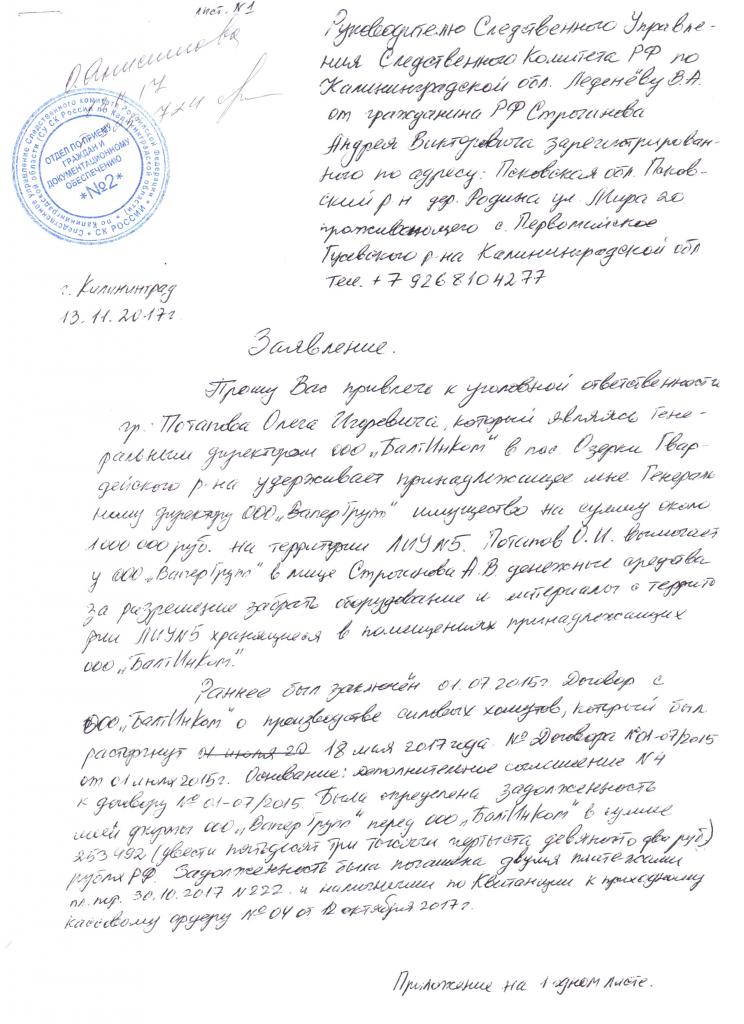 лист. №1
О. Анисимова
17
724
Следственное управление Следственного комитета Российской Федерации по Калининградской области (СУ СК России по Калининградской области)
ОТДЕЛ ПО ПРИЕМУ
ГРАЖДАН И
ДОКУМЕНТАЦИОННОМУ
ОБЕСПЕЧЕНИЮ
*№2*
* СК РОССИИ *
Руководителю Следственного Управле-
ния Следственного Комитета РФ по
Калининградской обл. Леденёву В.А.
от гражданина РФ Строгинова
Андрея Викторовича зарегистрирован-
ного по адресу: Псковская обл. Псков-
ский р-н дер. Родина ул. Мира 20
проживающего с. Первомайское
Гусевского р-на Калининградской обл
Тел. +7 926 8104277
г. Калининград
13.11.2017г.
Заявление.
Прошу Вас привлечь к уголовной ответственности
гр. Потапова Олега Игоревича, который являясь Гене-
ральным директором ООО „БалтИнКом" в пос. Озерки Гвар-
дейского р-на удерживает принадлежащее мне Генераль
ному директору ООО „ВаперГрупп" имущество на сумму около
1 000 000 руб. на территории ЛИУ №5. Потапов О.И. вымогает
у ООО „ВаперГрупп" в лице Строгинова А.В. денежные средства
за разрешение забрать оборудование и материалы с террито
рии ЛИУ №5 хранящиеся в помещениях принадлежащих
ООО „БалтИнКом".
Раннее был заключён 01.07.2015г. Договор с
ООО „БалтИнКом" о производстве силовых хомутов, который был
расторгнут 18 мая 2017 года. № Договора №01-07/2015
от 01 июля 2015г. Основание: дополнительное соглашение №4
к договору № 01-07/2015. Была определена задолженность
моей фирмы ООО „ВаперГрупп" перед ООО „БалтИнКом" в сумме
253 492 (двести пятьдесят три тысячи четыреста девяносто два руб)
рубля РФ. Задолженность была погашена двумя платежами
пл. пор. 30.10.2017 №222. и наличными по Квитанции к приходному
кассовому ордеру №04 от 12 октября 2017г.
Приложение на 1 одном листе.